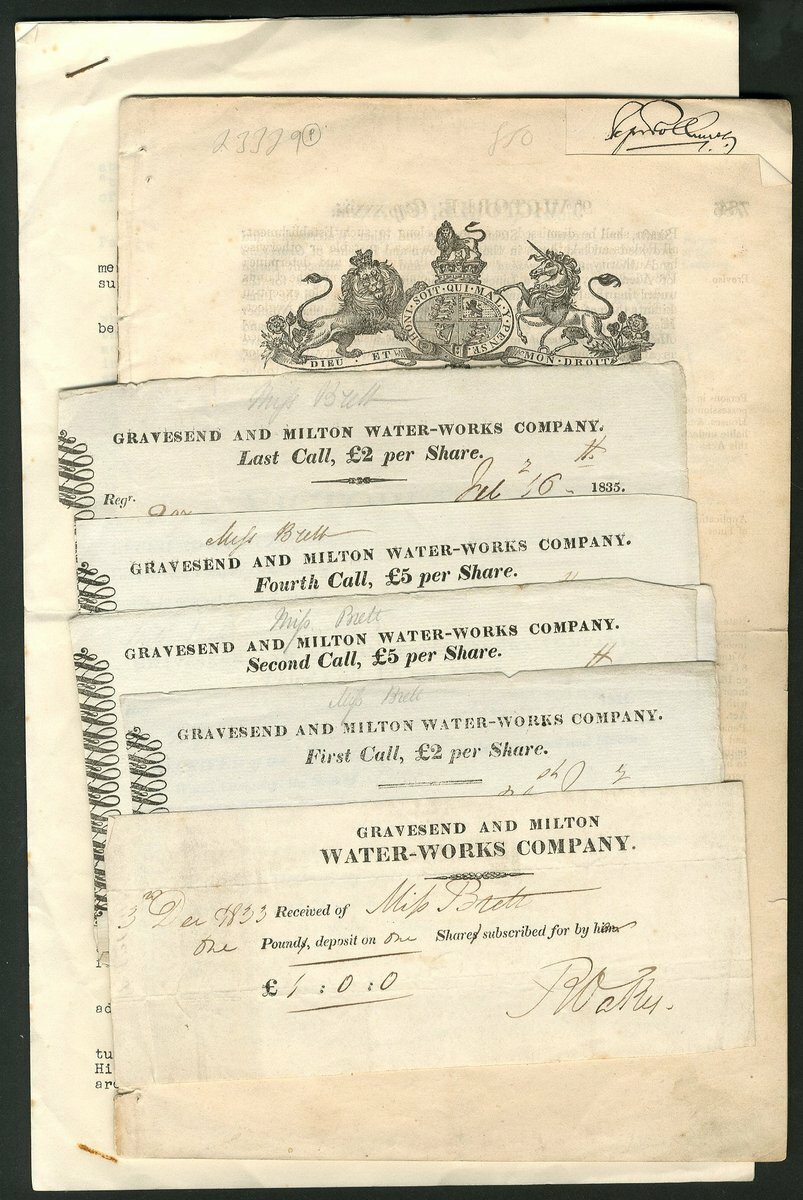 23329
850
HONI·SOIT·QUI·MAL·Y·PENSE
DIEU ET MON DROIT
me
su
be
Miss Brett
GRAVESEND AND MILTON WATER-WORKS COMPANY.
Last Call, £2 per Share.
Regr. Feb 16 1835.
Miss Brett
GRAVESEND AND MILTON WATER-WORKS COMPANY.
Fourth Call, £5 per Share.
Miss Brett
GRAVESEND AND MILTON WATER-WORKS COMPANY.
Second Call, £5 per Share.
Miss Brett
GRAVESEND AND MILTON WATER-WORKS COMPANY.
First Call, £2 per Share.
GRAVESEND AND MILTON
WATER-WORKS COMPANY.
3rd Dec 1833 Received of Miss Brett
one Pounds, deposit on one Shares subscribed for by him
£ 1 : 0 : 0
ad
tu
Hi
are